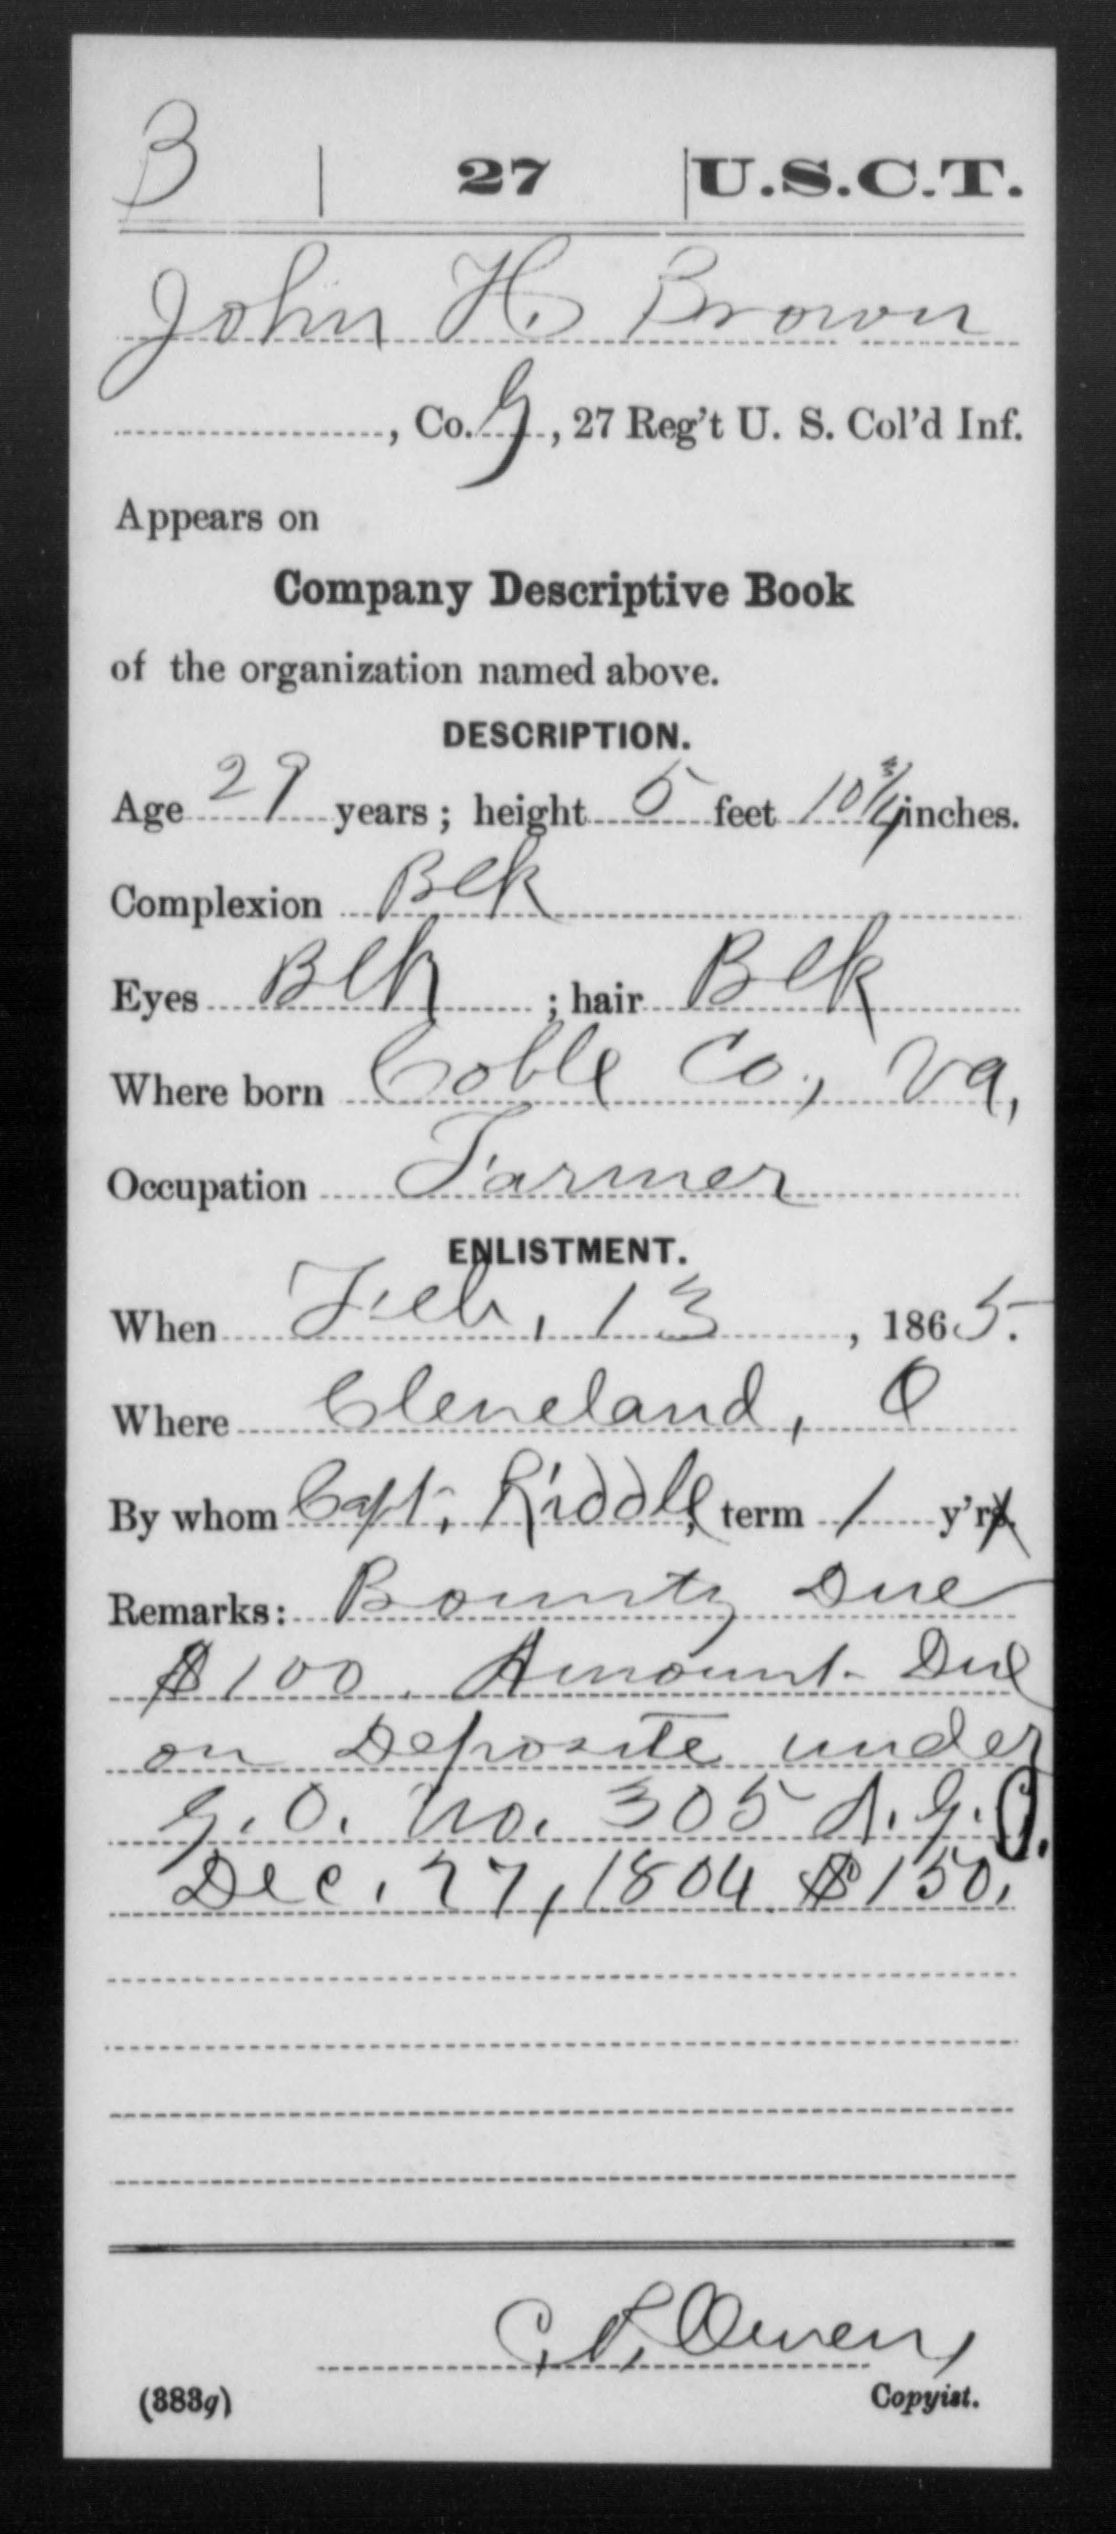 B | 27 | U.S.C.T.
John H. Brown
, Co. G, 27 Reg't U. S. Col'd Inf.
Appears on
Company Descriptive Book
of the organization named above.
DESCRIPTION.
Age 29 years; height 5 feet 10 3/4 inches.
Complexion Blk
Eyes Blk ; hair Blk
Where born Coble Co., Va,
Occupation Farmer
ENLISTMENT.
When Feb, 13 , 1865.
Where Cleveland, O
By whom Capt. Riddle, term 1 y'rs.
Remarks: Bounty Due
$100. Amount Due
on Deposite under
G.O. No. 305 A.G.O.
Dec. 27, 1864 $150.
C. L. Owen,
(383g) Copyist.